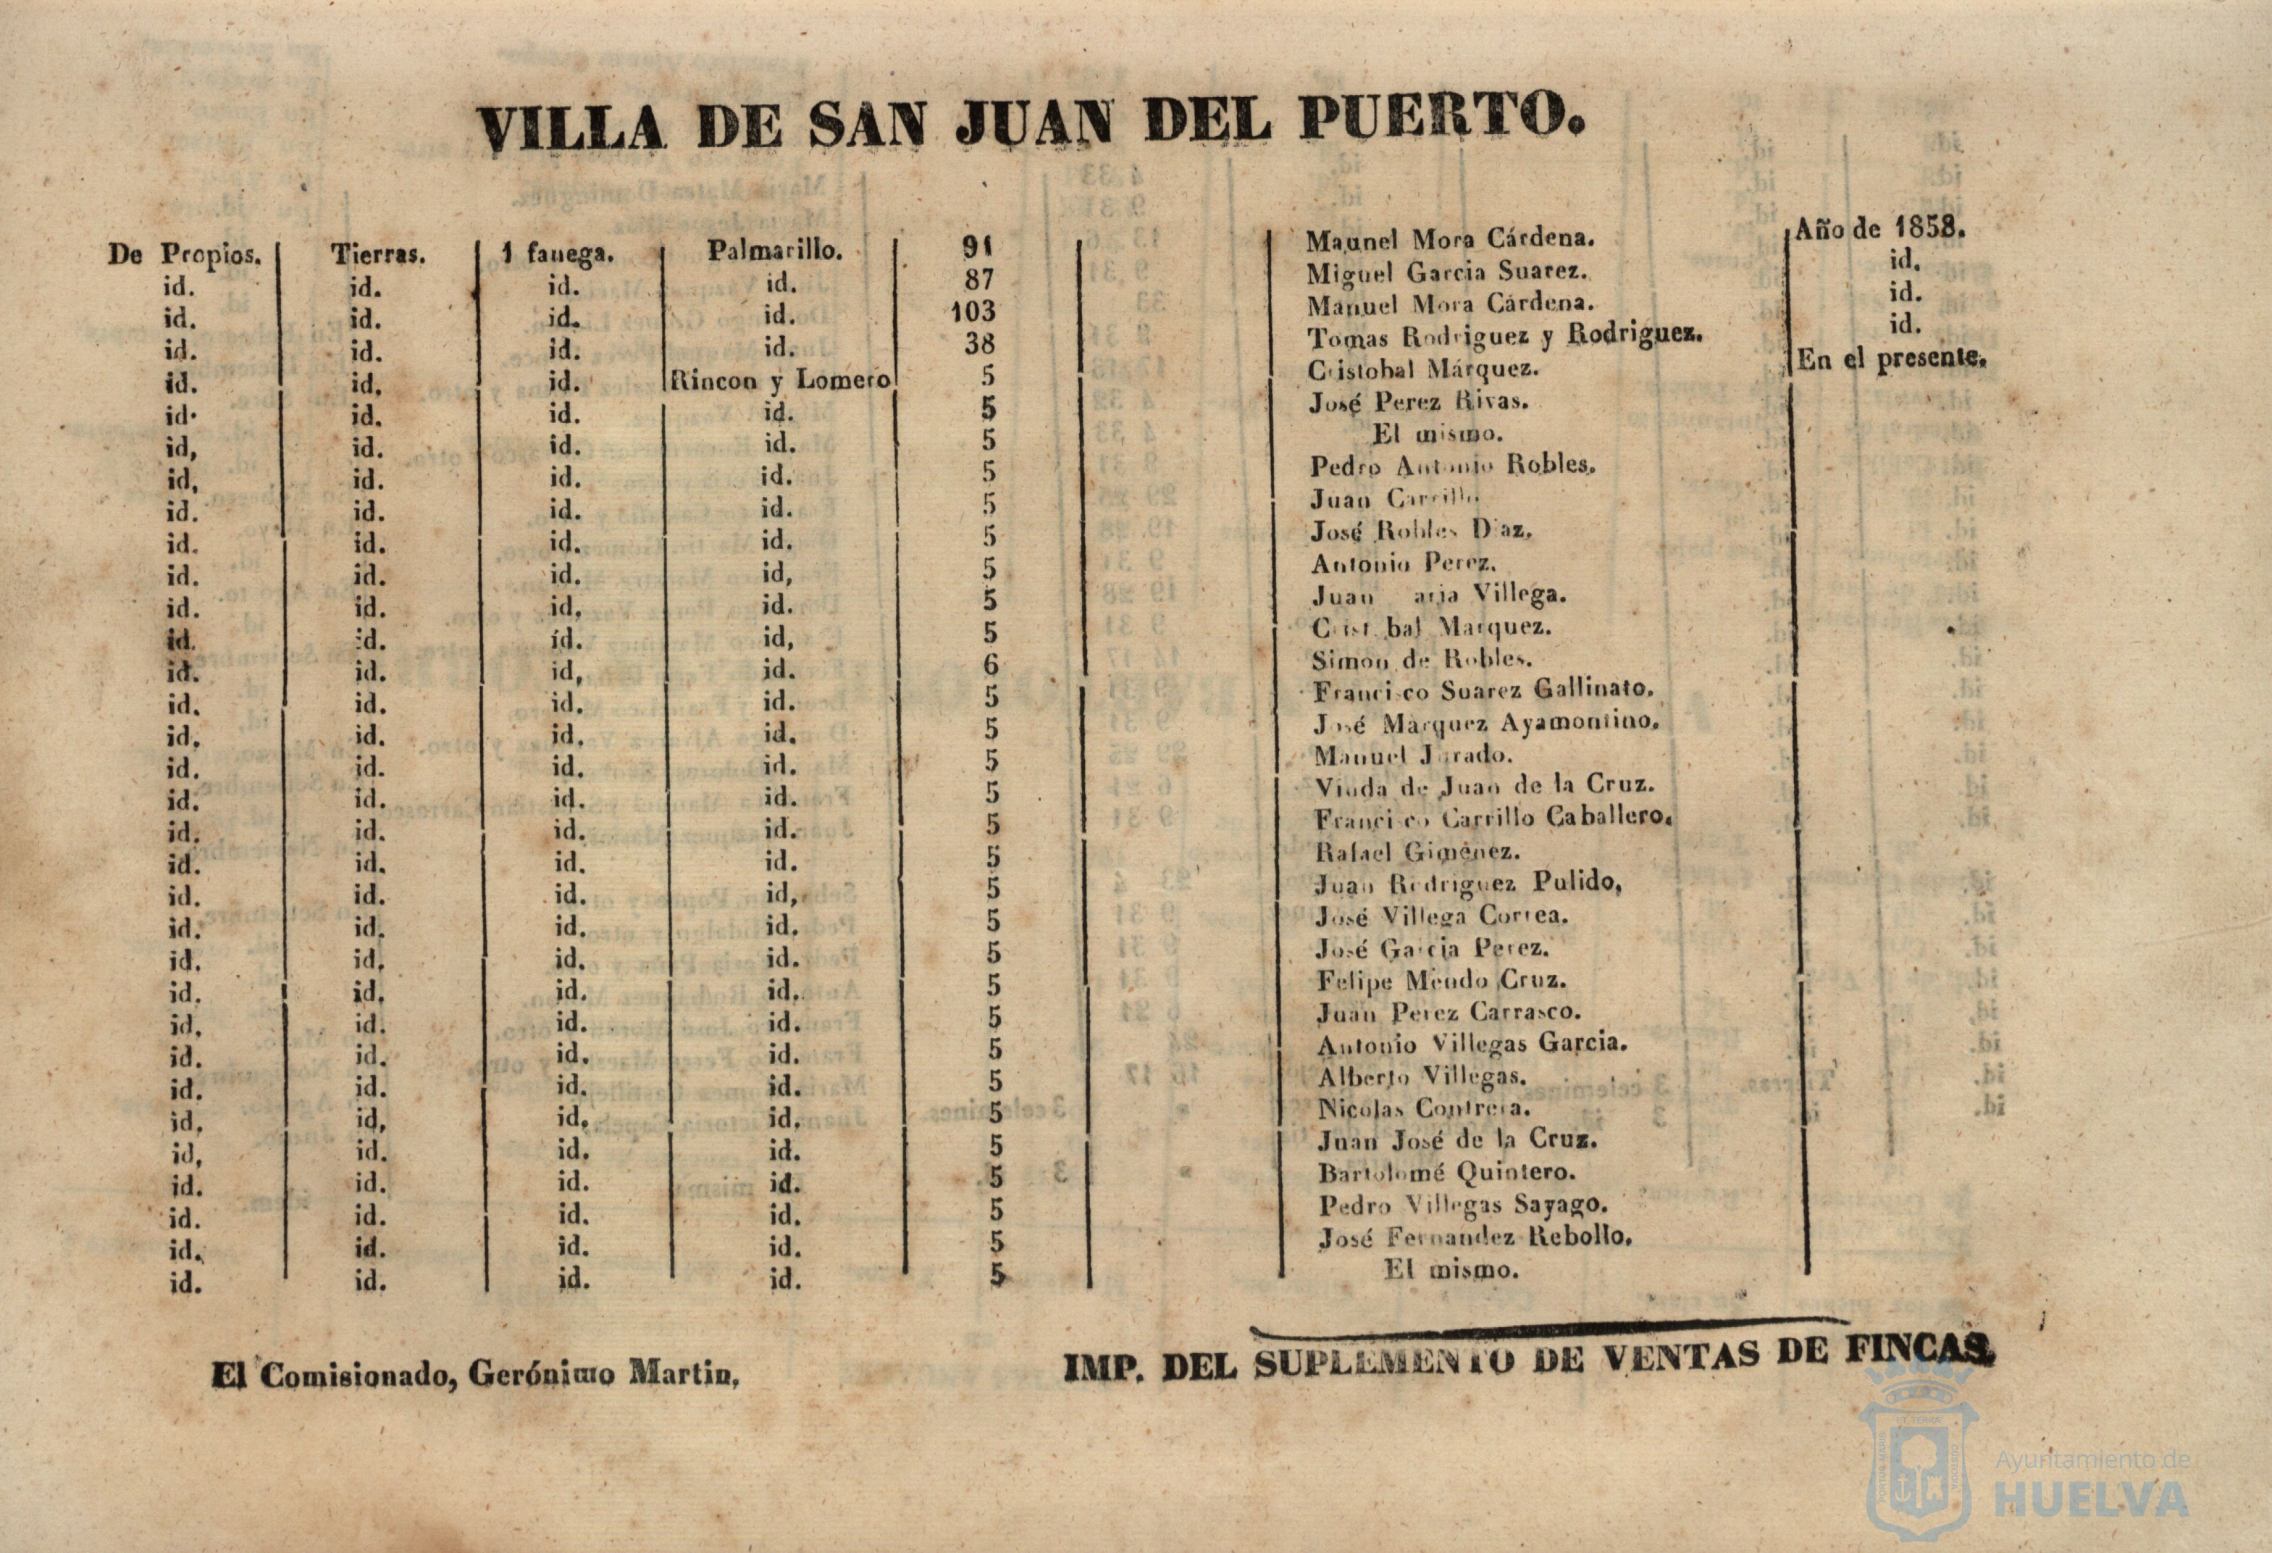 VILLA DE SAN JUAN DEL PUERTO.
De Propios. Tierras. 1 fanega. Palmarillo. 91 Maunel Mora Cárdena. Año de 1858.
id. id. id. id. 87 Miguel Garcia Suarez. id.
id. id. id. id. 103 Manuel Mora Cárdena. id.
id. id. id. id. 38 Tomas Rodriguez y Rodriguez. id.
id. id. id. Rincon y Lomero 5 Cristobal Márquez. En el presente.
id. id. id. id. 5 José Perez Rivas.
id, id. id. id. 5 El mismo.
id, id. id. id. 5 Pedro Antonio Robles.
id. id. id. id. 5 Juan Carrillo
id. id. id. id. 5 José Robles Diaz.
id. id. id. id, 5 Antonio Perez.
id. id. id, id. 5 Juan aria Villega.
id. id. id. id, 5 Crist bal Marquez.
id. id. id, id. 6 Simon de Robles.
id. id. id. id. 5 Francisco Suarez Gallinato.
id, id. id. id. 5 José Marquez Ayamontino.
id. id. id. id. 5 Manuel Jurado.
id. id. id. id. 5 Viuda de Juan de la Cruz.
id. id. id. id. 5 Francisco Carrillo Caballero.
id. id. id. id. 5 Rafael Gimenez.
id. id. id. id, 5 Juan Rodriguez Pulido,
id. id. id. id. 5 José Villega Correa.
id. id, id. id. 5 José Garcia Perez.
id. id. id. id. 5 Felipe Mendo Cruz.
id, id. id. id. 5 Juan Perez Carrasco.
id. id. id. id. 5 Antonio Villegas Garcia.
id. id. id. id. 5 Alberto Villegas.
id. id, id. id. 5 Nicolas Contrera.
id, id. id. id. 5 Juan José de la Cruz.
id. id. id. id. 5 Bartolomé Quintero.
id. id. id. id. 5 Pedro Villegas Sayago.
id. id. id. id. 5 José Fernandez Rebollo.
id. id. id. id. 5 El mismo.
El Comisionado, Gerónimo Martin.
IMP. DEL SUPLEMENTO DE VENTAS DE FINCAS.
Ayuntamiento de
HUELVA